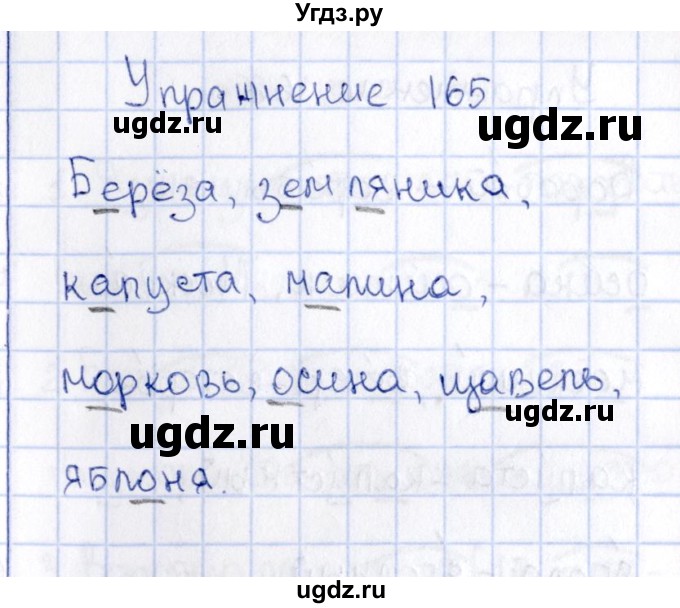 Угдз.ру
Упражнение 165
ugdz.ru
ugdz.ru
Берёза, земляника,
капуста, малина,
морковь, осина, щавель,
ugdz.ru
ugdz.ru
яблоня.
ugdz.ru